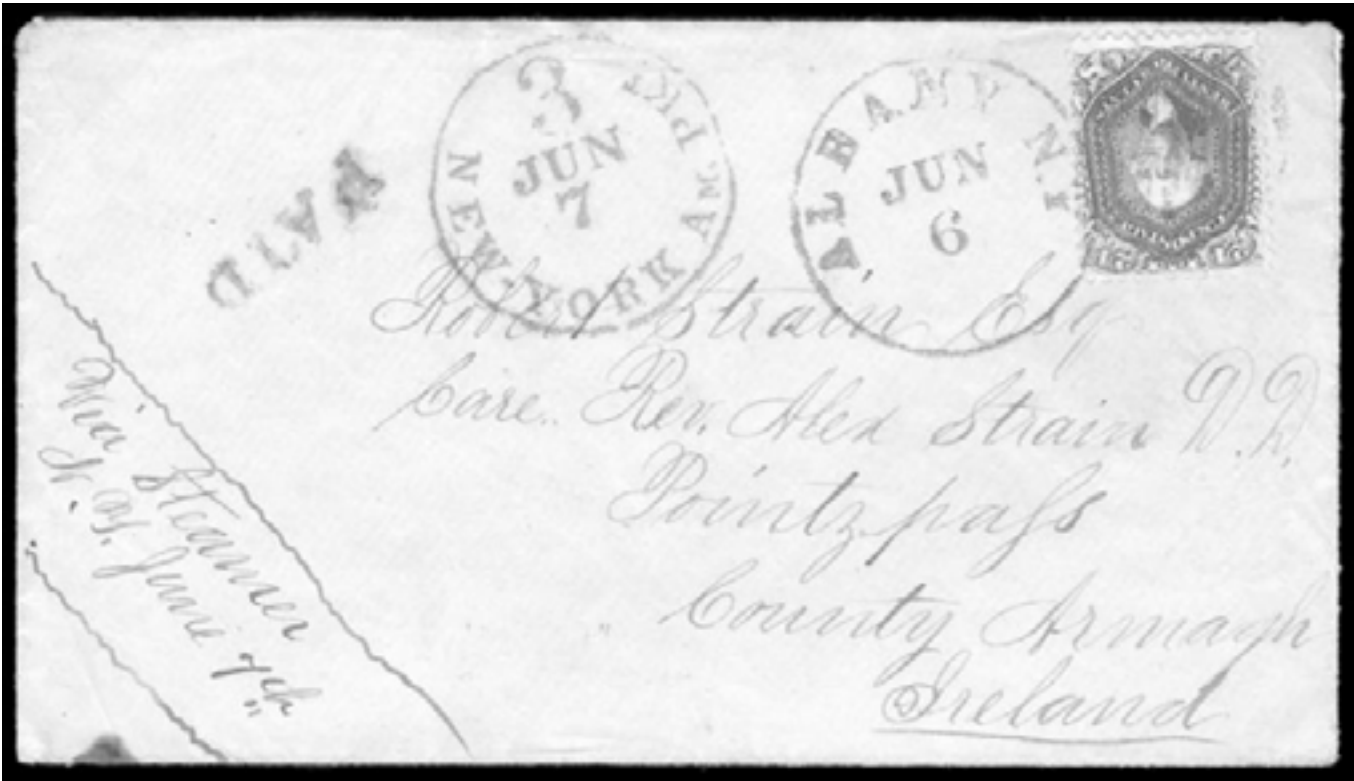 PAID
3
NEW-YORK AM. PKT.
JUN
7
ALBANY N.Y.
JUN
6
Robert Strain Esq
Care. Rev. Alex Strain D.D.
Pointzpass
County Armagh
Ireland
Via Steamer
N. Y. June 7th